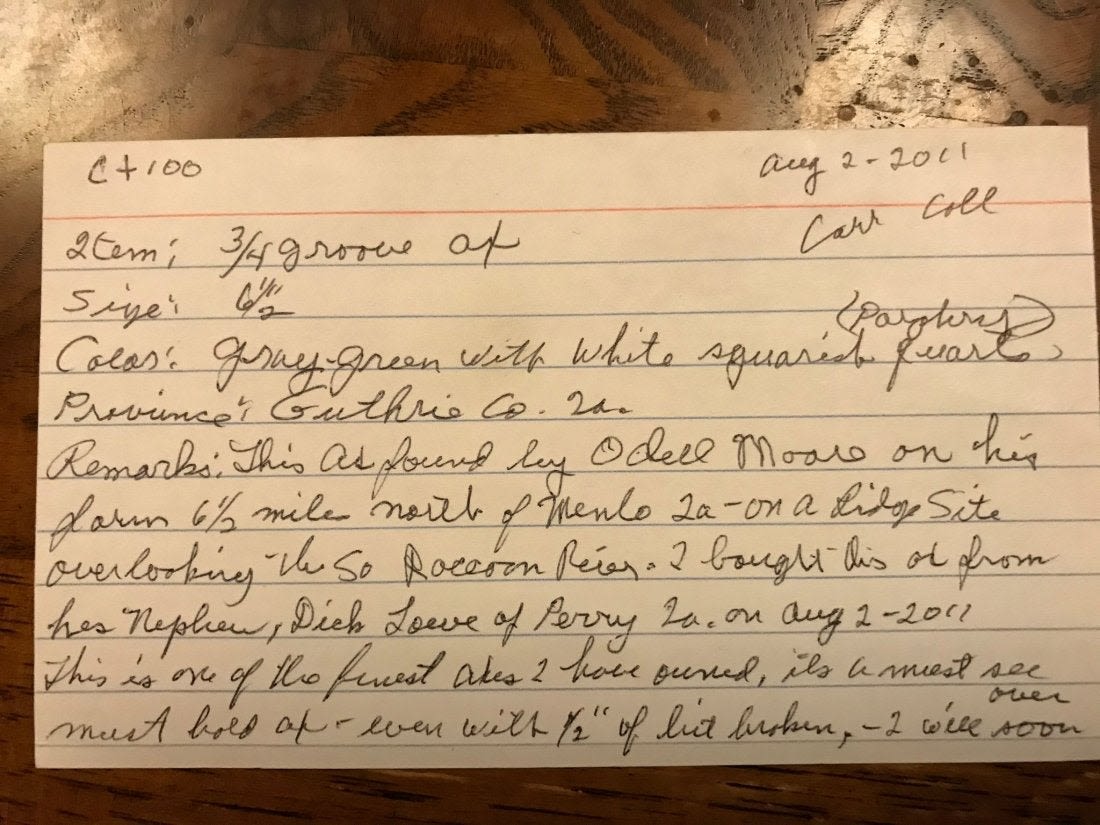 C + 100
Aug 2-2011
Carr Coll
Item; 3/4 groove ax
Size: 6 1/2"
(Porphry)
Color: Gray-green with White squarish quartz
Province: Guthrie Co. Ia.
Remarks: This Ax found by Odell Moore on his
farm 6 1/2 mile north of Menlo Ia - on a Ridge Site
overlooking the So Raccoon River. I bought this ax from
his Nephew, Dick Lowe of Perry Ia. on Aug 2-2011
This is one of the finest axes I have owned, its a must see
must hold ax - even with 1/2" of bit broken, - I will soon
over